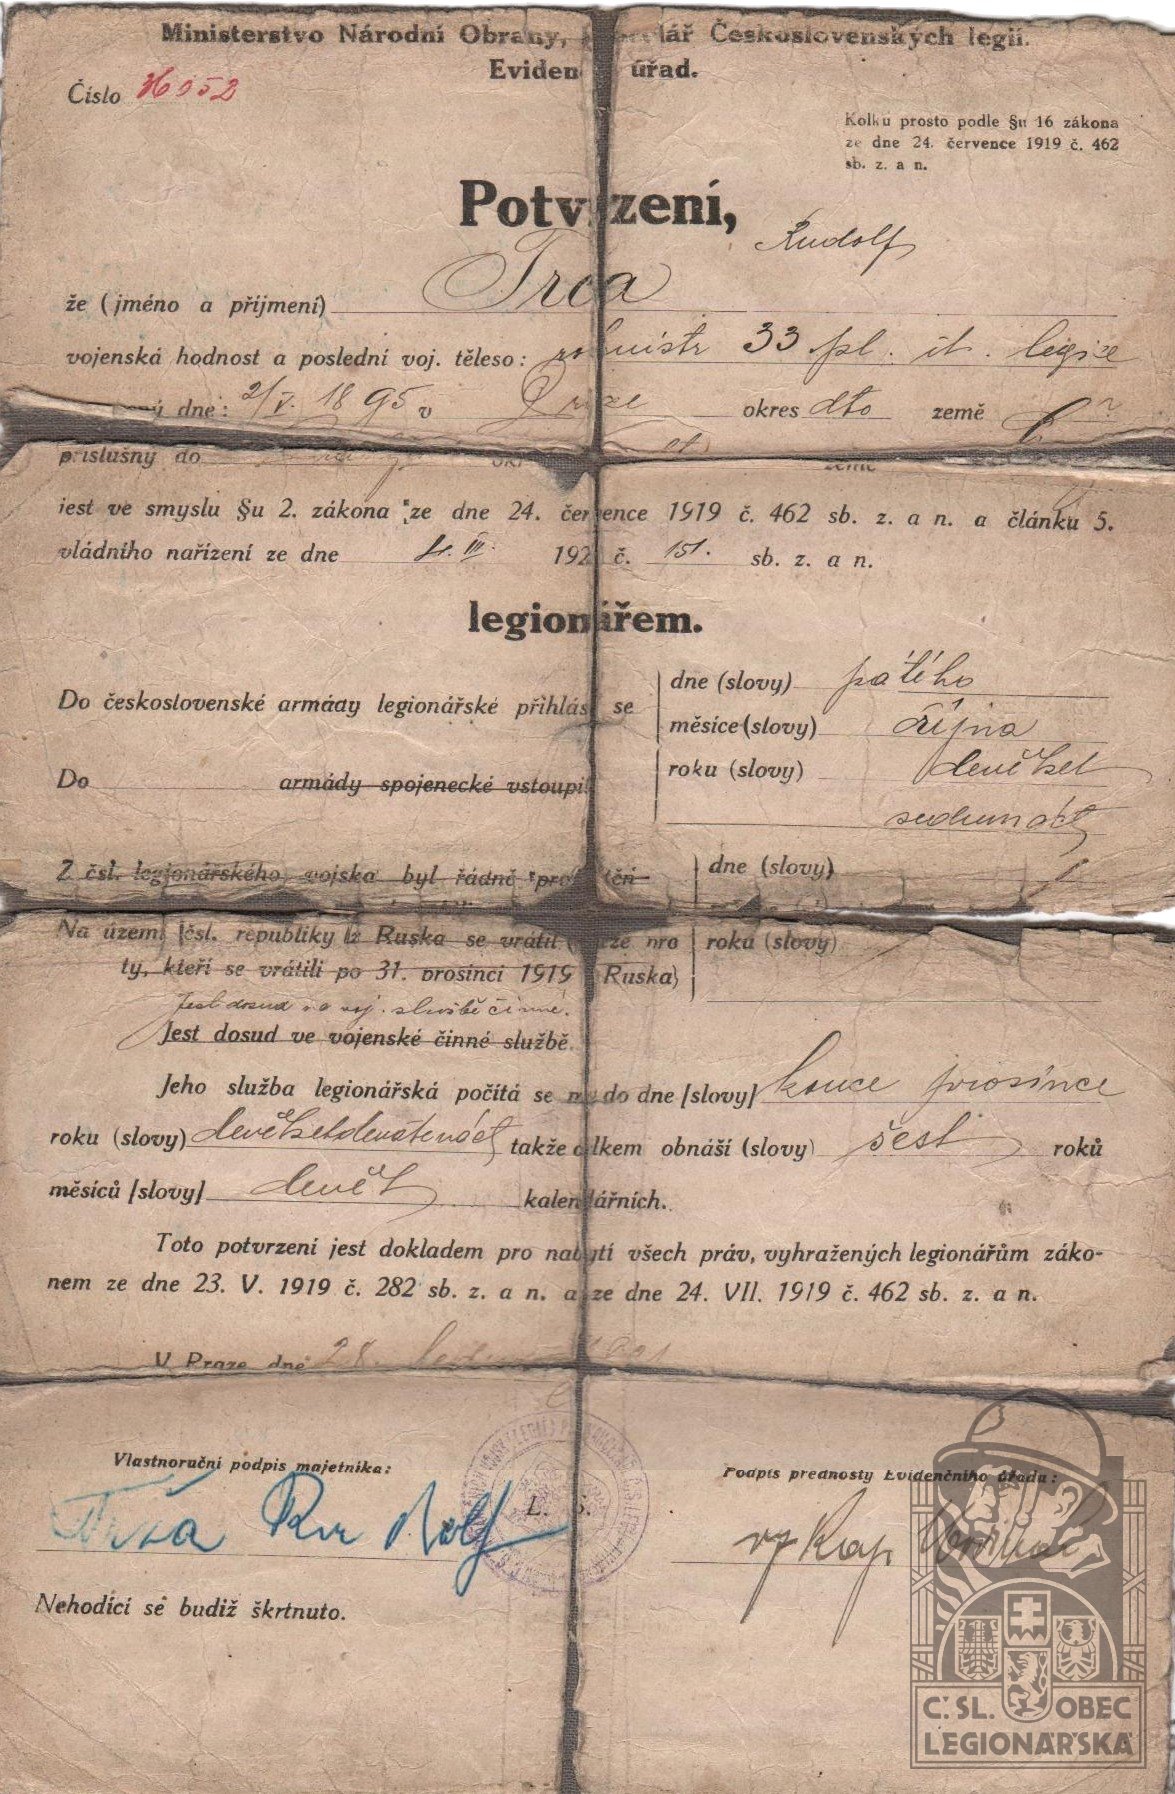 Ministerstvo Národní Obrany, Kancelář Československých legií.
Evidenční úřad.
Číslo
Kolku prosto podle §u 16 zákona
ze dne 24. července 1919 č. 462
sb. z. a n.
Potvrzení,
Rudolf
že (jméno a příjmení) Trča
vojenská hodnost a poslední voj. těleso: rotmistr 33 pl. it. legie
dne: 2/V. 1895 v Praze okres dto země
příslušný do
jest ve smyslu §u 2. zákona ze dne 24. července 1919 č. 462 sb. z. a n. a článku 5.
vládního nařízení ze dne 4. III. 192 č. 151. sb. z. a n.
legionářem.
Do československé armády legionářské přihlásil se
dne (slovy) pátého
měsíce (slovy) října
roku (slovy) devětset
sedmnáct
Do armády spojenecké vstoupil
Z čsl. legionářského vojska byl řádně
dne (slovy)
Na území čsl. republiky z Ruska se vrátil (pouze pro
ty, kteří se vrátili po 31. prosinci 1919 z Ruska)
roku (slovy)
Jest dosud ve voj. službě činné.
Jest dosud ve vojenské činné službě.
Jeho služba legionářská počítá se mu do dne [slovy] konce prosince
roku (slovy) devětsetdevatenáct takže celkem obnáší (slovy) šest roků
měsíců [slovy] devět kalendářních.
Toto potvrzení jest dokladem pro nabytí všech práv, vyhražených legionářům záko-
nem ze dne 23. V. 1919 č. 282 sb. z. a n. a ze dne 24. VII. 1919 č. 462 sb. z. a n.
V Praze dne 28.
Vlastnoruční podpis majetníka:
Podpis přednosty Evidenčního úřadu:
Trča Rudolf
L. S.
Nehodící se budiž škrtnuto.
Č. SL. OBEC
LEGIONÁŘSKÁ